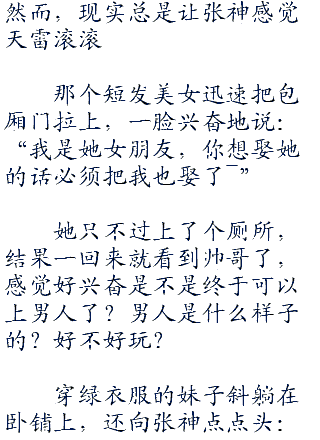 然而，现实总是让张神感觉
天雷滚滚
那个短发美女迅速把包
厢门拉上，一脸兴奋地说：
“我是她女朋友，你想娶她
的话必须把我也娶了~”
她只不过上了个厕所，
结果一回来就看到帅哥了，
感觉好兴奋是不是终于可以
上男人了？男人是什么样子
的？好不好玩？
穿绿衣服的妹子斜躺在
卧铺上，还向张神点点头：